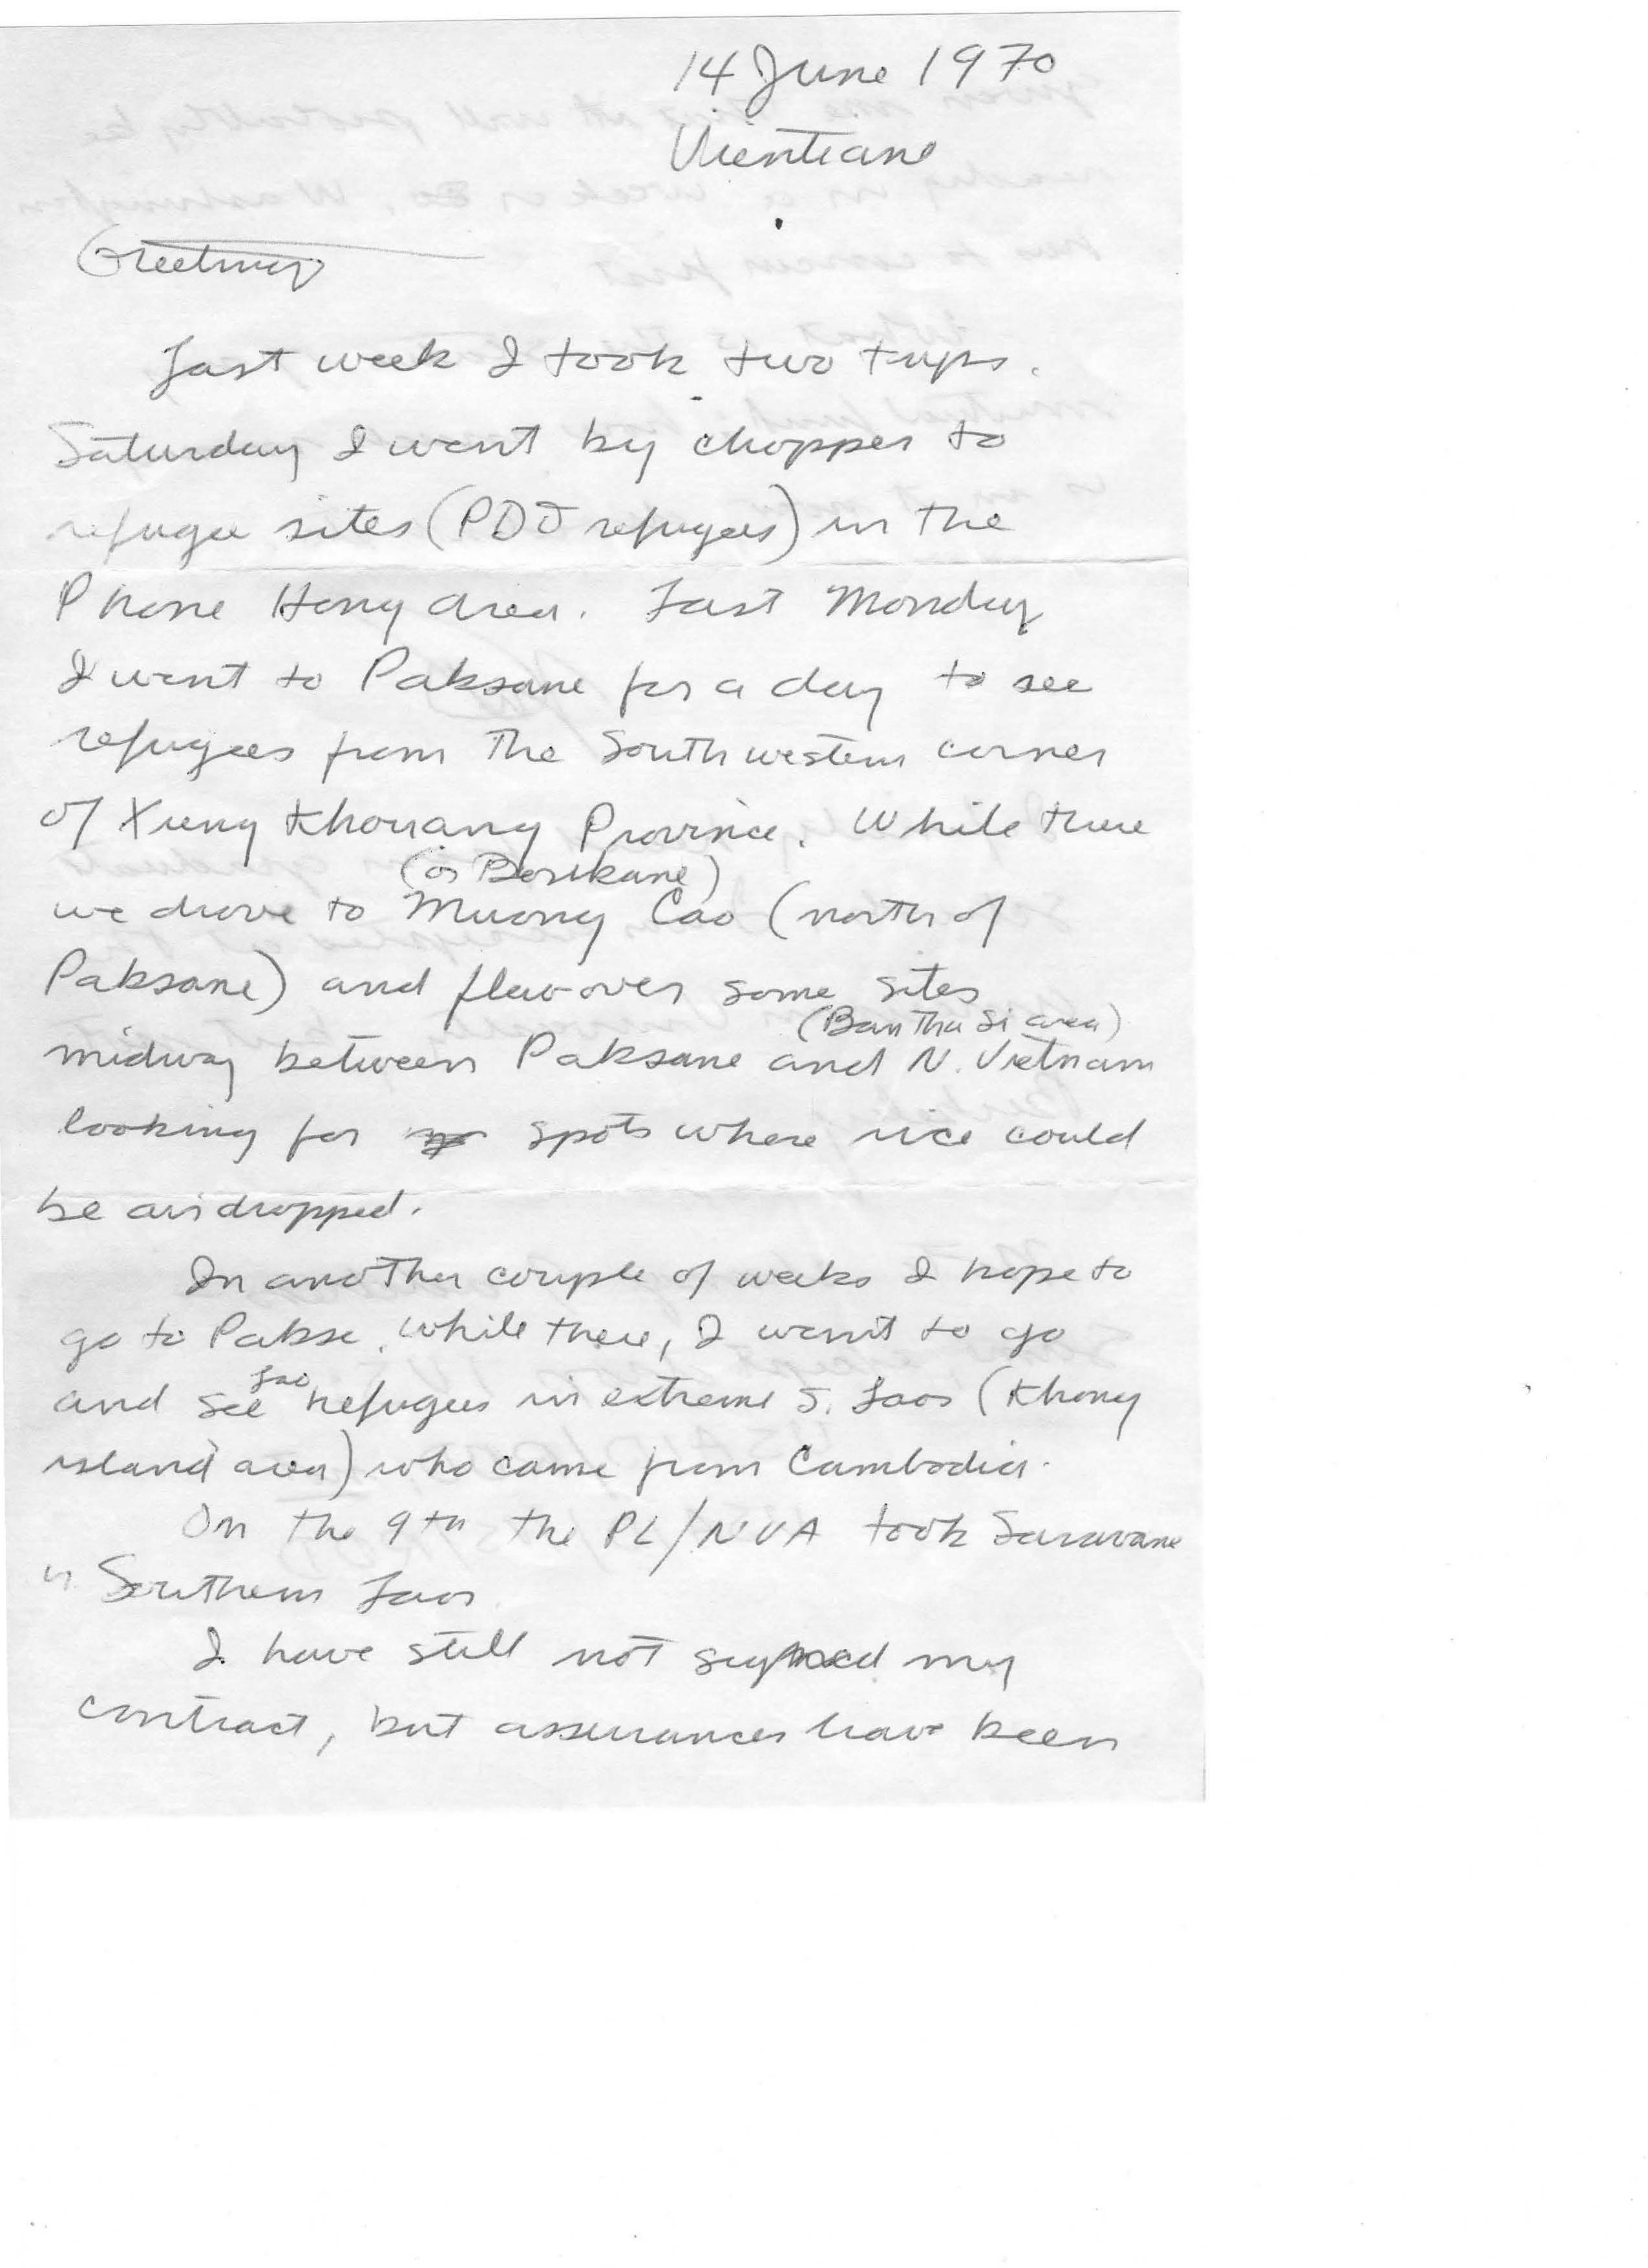 14 June 1970
Vientiane
Greetings
Last week I took two trips.
Saturday I went by chopper to
refugee sites (PDJ refugees) in the
Phone Hong area. Last Monday
I went to Paksane for a day to see
refugees from the Southwestern corner
of Xieng Khouang Province. While there
(or Borikane)
we drove to Muong Cao (north of
Paksane) and flew over some sites
(Ban Tha Si area)
midway between Paksane and N. Vietnam
looking for spots where rice could
be airdropped.
In another couple of weeks I hope to
go to Pakse. While there, I want to go
Lao
and see refugees in extreme S. Laos (Khong
island area) who came from Cambodia.
On the 9th the PL/NVA took Saravane
in Southern Laos.
I have still not signed my
contract, but assurances have been